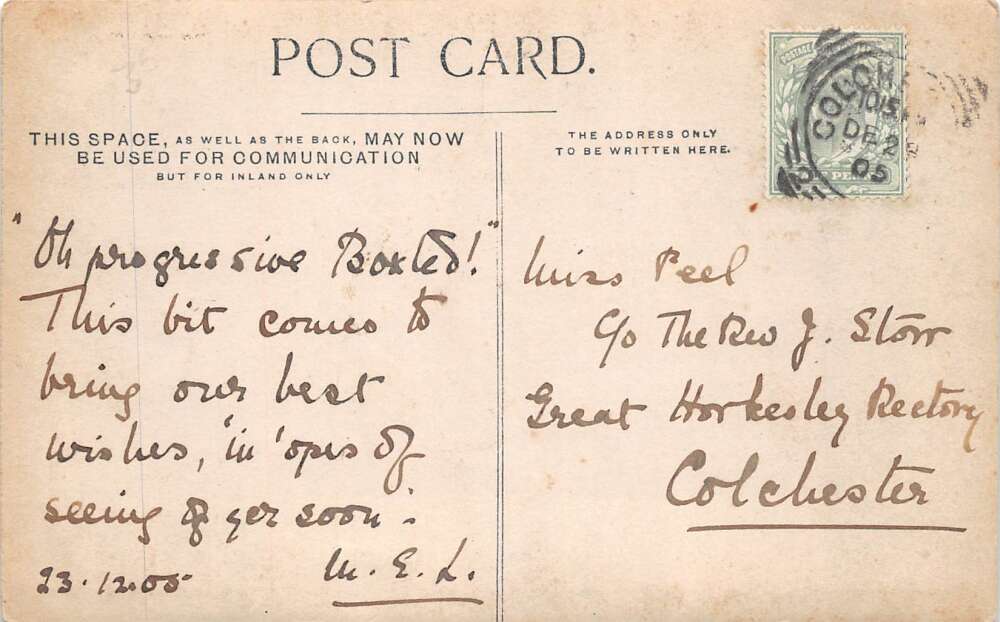 POST CARD.
THIS SPACE, AS WELL AS THE BACK, MAY NOW
BE USED FOR COMMUNICATION
BUT FOR INLAND ONLY
THE ADDRESS ONLY
TO BE WRITTEN HERE.
POSTAGE
COLCH
1015
DE 2
05
"Oh progressive Boxted!"
This bit comes to
bring our best
wishes, 'in 'opes of
seeing of yer soon'.
23.12.05
M. E. L.
Miss Peel
C/o The Rev J. Storr
Great Horkesley Rectory
Colchester